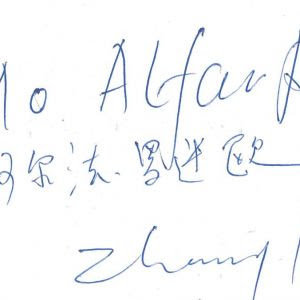 To. Alfa
阿尔法·罗迷欧
Zhang